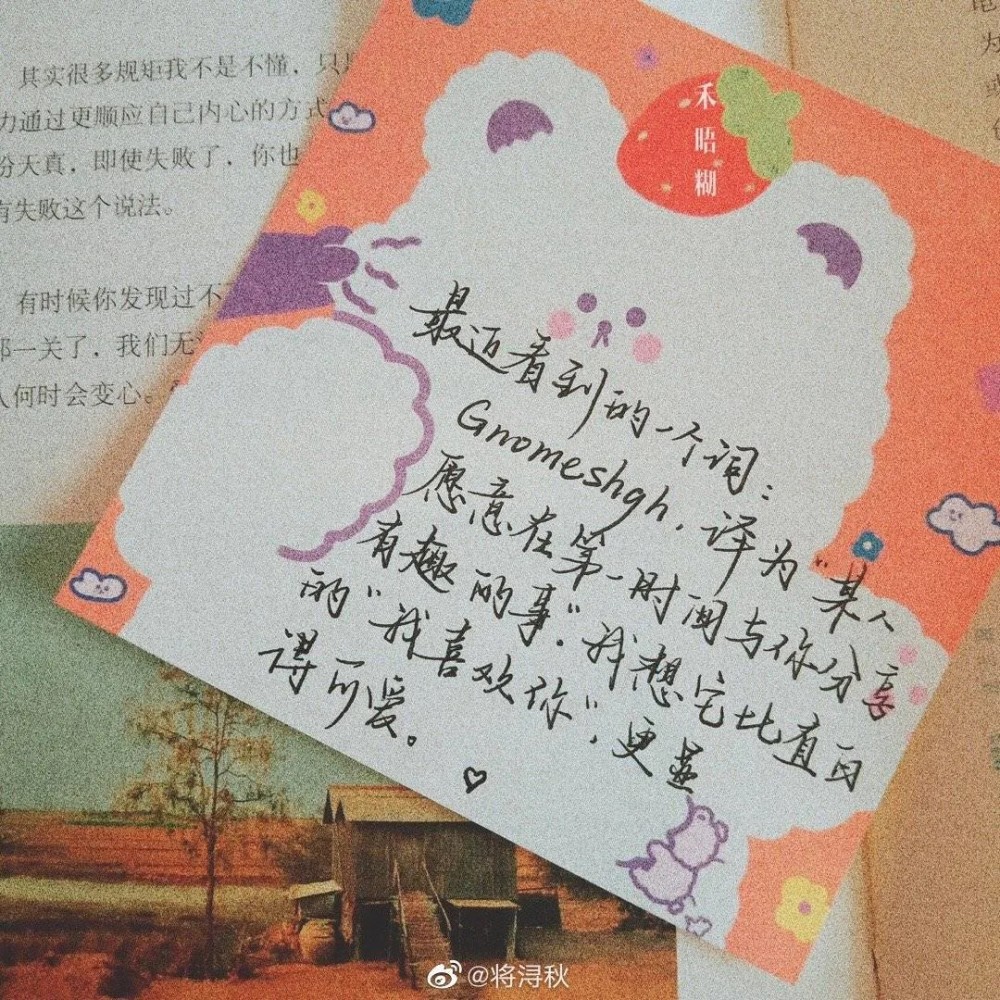 其实很多规矩我不是不懂，只
力通过更顺应自己内心的方式
份天真，即使失败了，你也
有失败这个说法。
有时候你发现过不
那一关了，我们无
人何时会变心。
禾晤糊
最近看到的一个词：
Gnomeshgh．译为“某人
愿意在第一时间与你分享
有趣的事”．我想它比直白
的“我喜欢你”，更显
得可爱。
为
@将浔秋